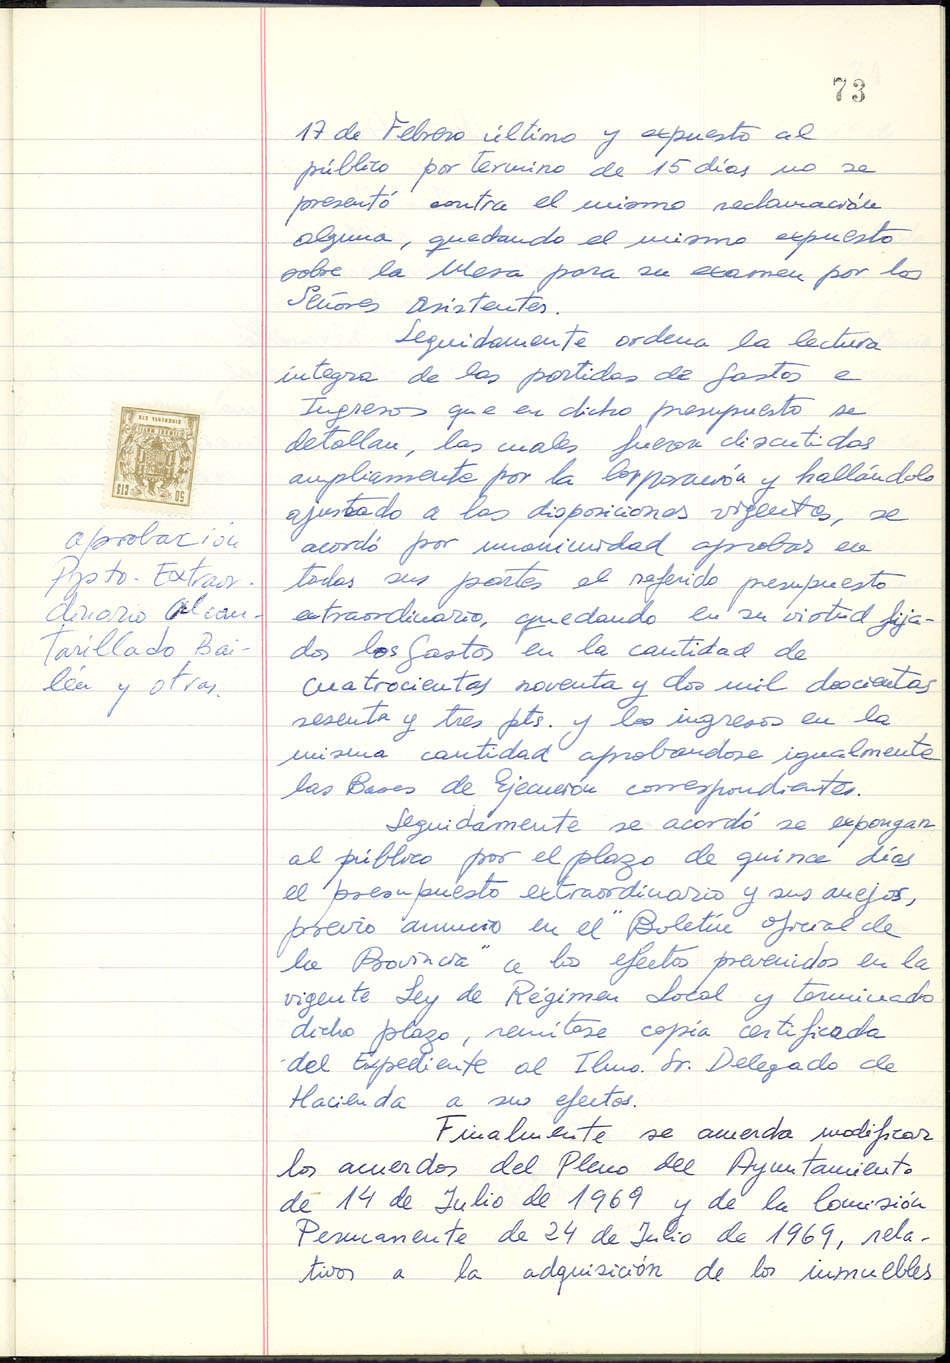 73
17 de Febrero último y expuesto al
público por termino de 15 días no se
presentó contra el mismo reclamación
alguna, quedando el mismo expuesto
sobre la Mesa para su examen por los
Señores Asistentes.
Seguidamente ordena la lectura
integra de las partidas de Gastos e
Ingresos que en dicho presupuesto se
detallan, las cuales fueron discutidas
ampliamente por la Corporación y hallándolo
ajustado a las disposiciones vigentes, se
acordó por unanimidad aprobar en
todas sus partes el referido presupuesto
extraordinario, quedando en su virtud fija-
dos los Gastos en la cantidad de
cuatrocientas noventa y dos mil doscientas
sesenta y tres pts. y los ingresos en la
misma cantidad aprobandose igualmente
las Bases de Ejecución correspondientes.
Seguidamente se acordó se expongan
al público por el plazo de quince días
el presupuesto extraordinario y sus anejos,
previo anuncio en el "Boletín oficial de
la Provincia" a los efectos prevenidos en la
vigente Ley de Régimen Local y terminado
dicho plazo, remítese copia certificada
del Expediente al Ilmo. Sr. Delegado de
Hacienda a sus efectos.
Finalmente se acuerda modificar
los acuerdos del Pleno del Ayuntamiento
de 14 de Julio de 1969 y de la Comisión
Permanente de 24 de Julio de 1969, rela-
tivos a la adquisición de los inmuebles
50 CTS
TIMBRE MOVIL
CINCUENTA CTS
aprobación
Ppsto. Extraor-
dinario Alcan-
tarillado Bai-
lén y otras.